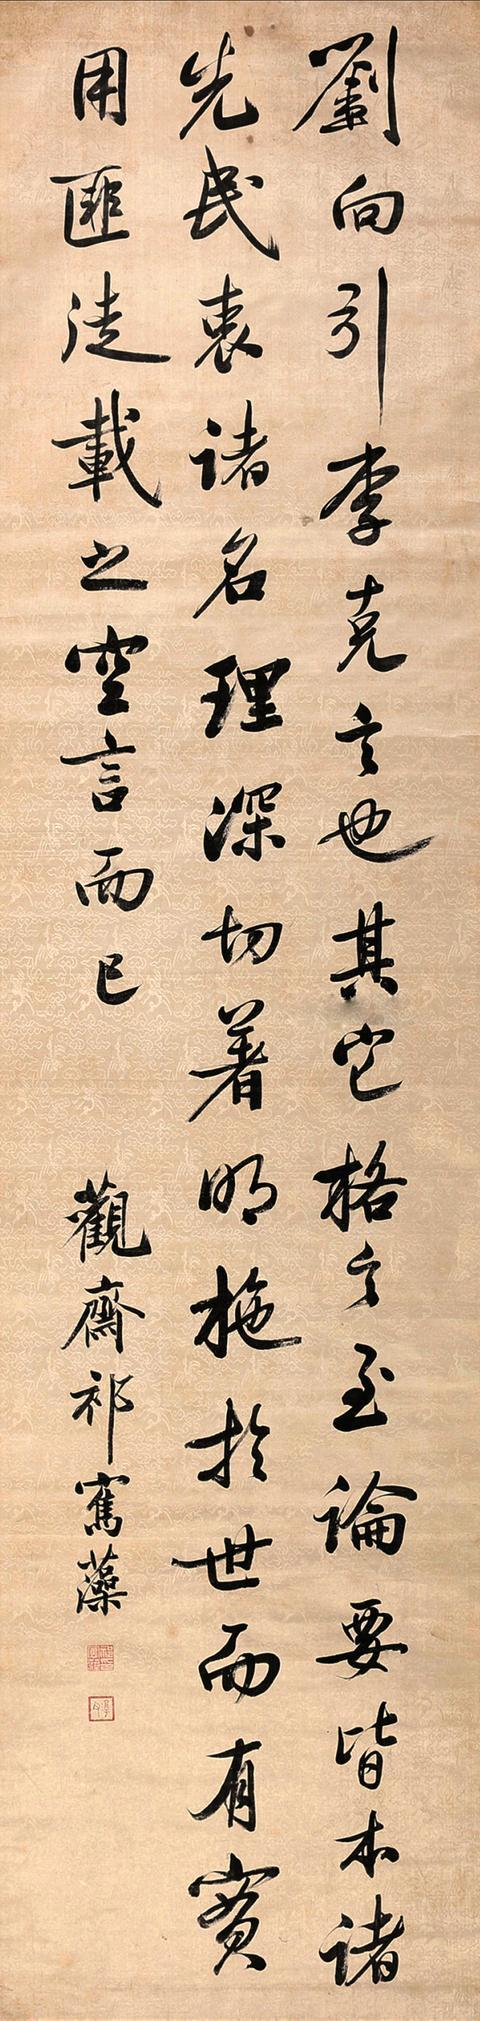 劉向引李克之言也其它格言至論要皆本諸
先民衷諸名理深切著明施於世而有實
用匪徒載之空言而已
觀齋祁寯藻